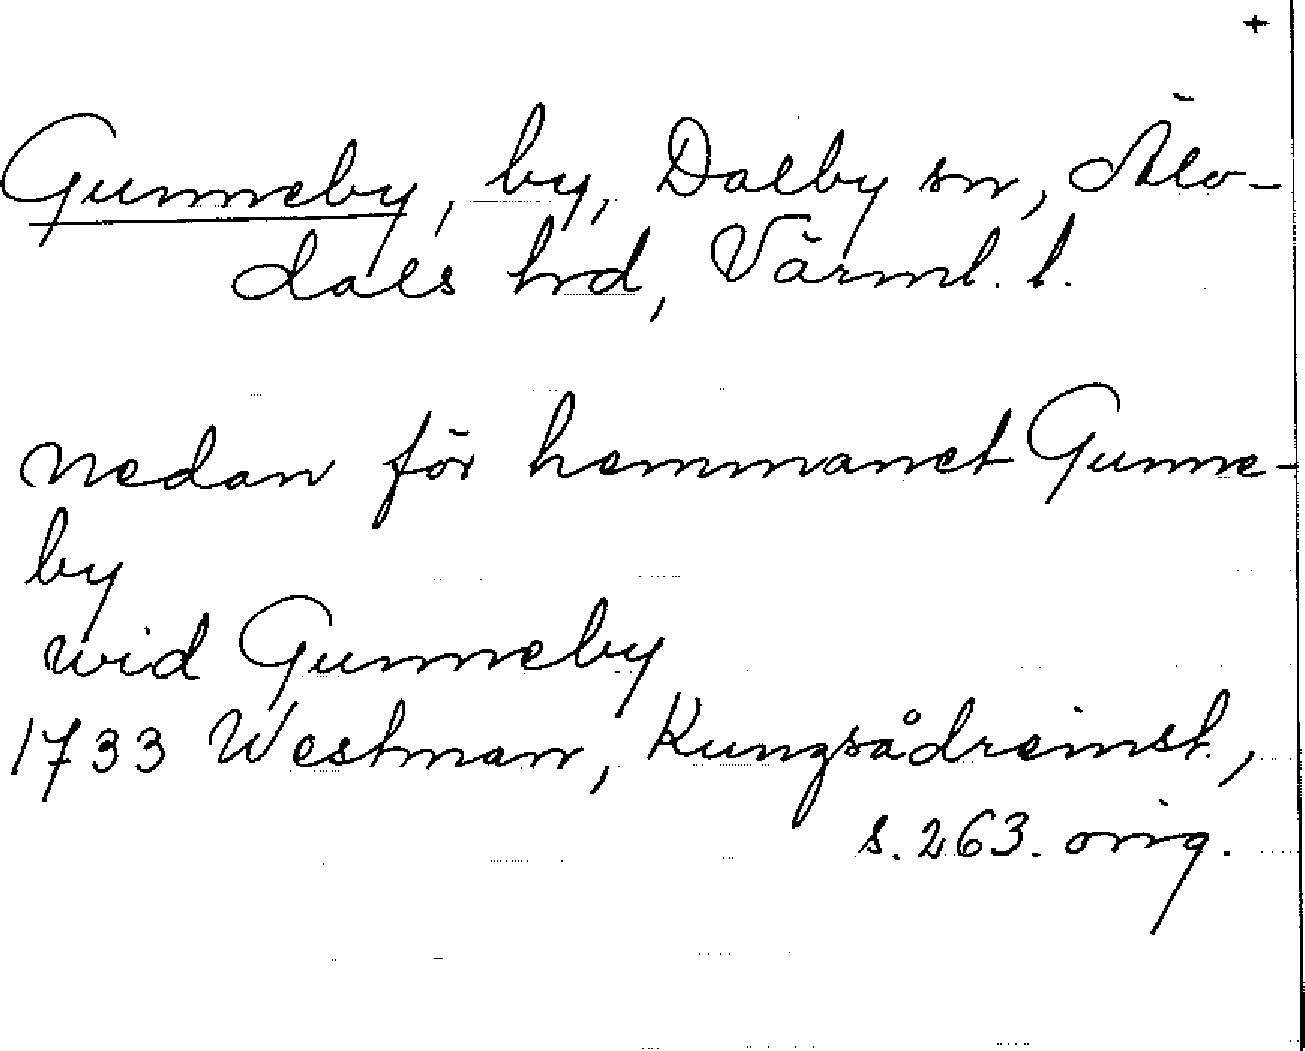 +
Gunneby, by, Dalby sn, Älv-
dals hrd, Värml. l.
nedan för hemmanet Gunne-
by
wid Gunneby
1733 Westman, Kungsådreinst.,
s. 263. orig.